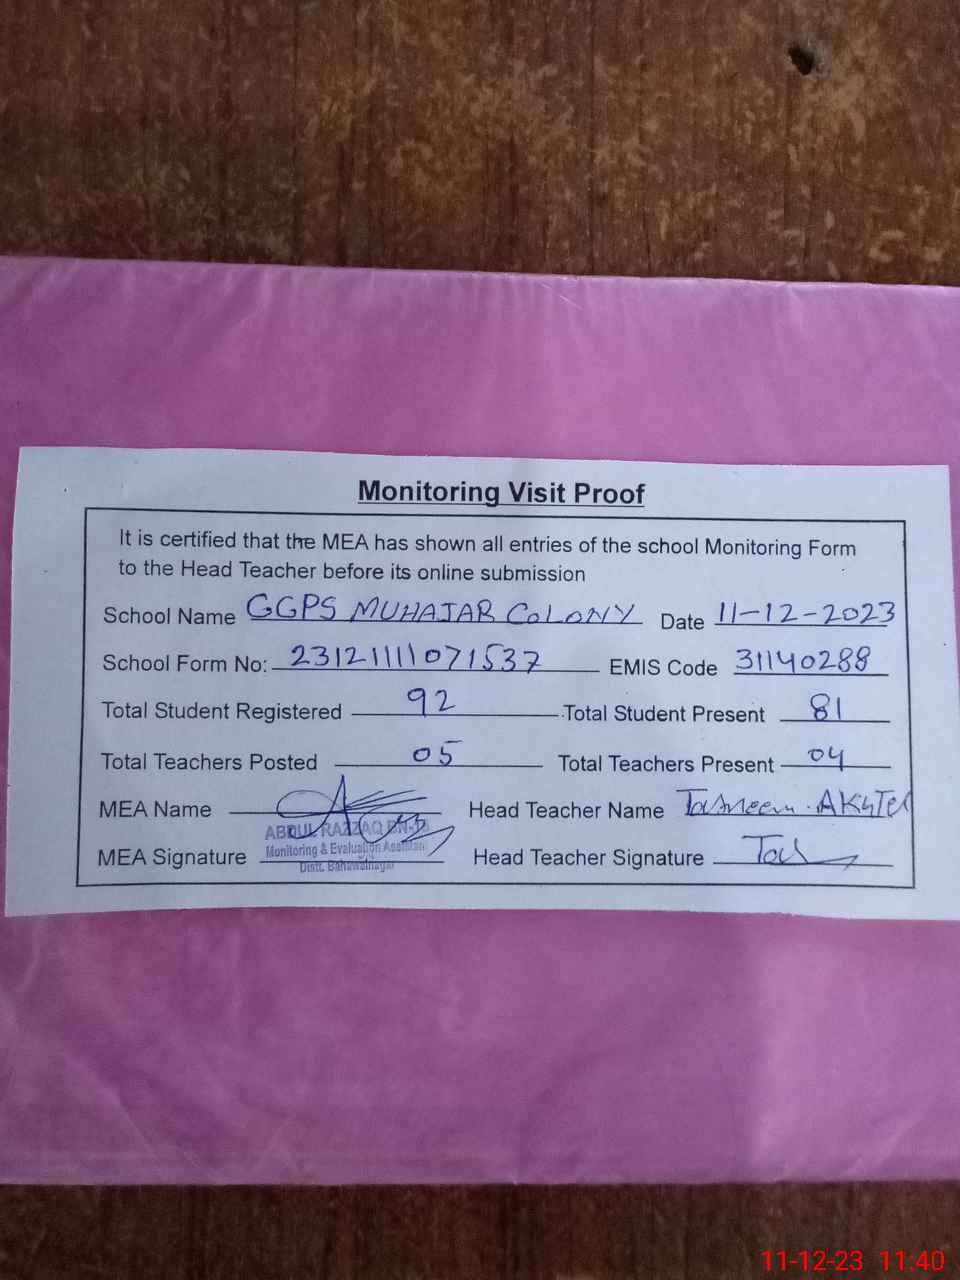 Monitoring Visit Proof
It is certified that the MEA has shown all entries of the school Monitoring Form
to the Head Teacher before its online submission
School Name GGPS MUHAJAR COLONY Date 11-12-2023
School Form No: 23121111071537 EMIS Code 31140288
Total Student Registered 92 Total Student Present 81
Total Teachers Posted 05 Total Teachers Present 04
MEA Name Head Teacher Name Tasneem. AKhTer
ABDUL RAZZAQ
MEA Signature Monitoring & Evaluation Assistant Head Teacher Signature Tas
Distt. Bahawalnagar
11-12-23 11:40